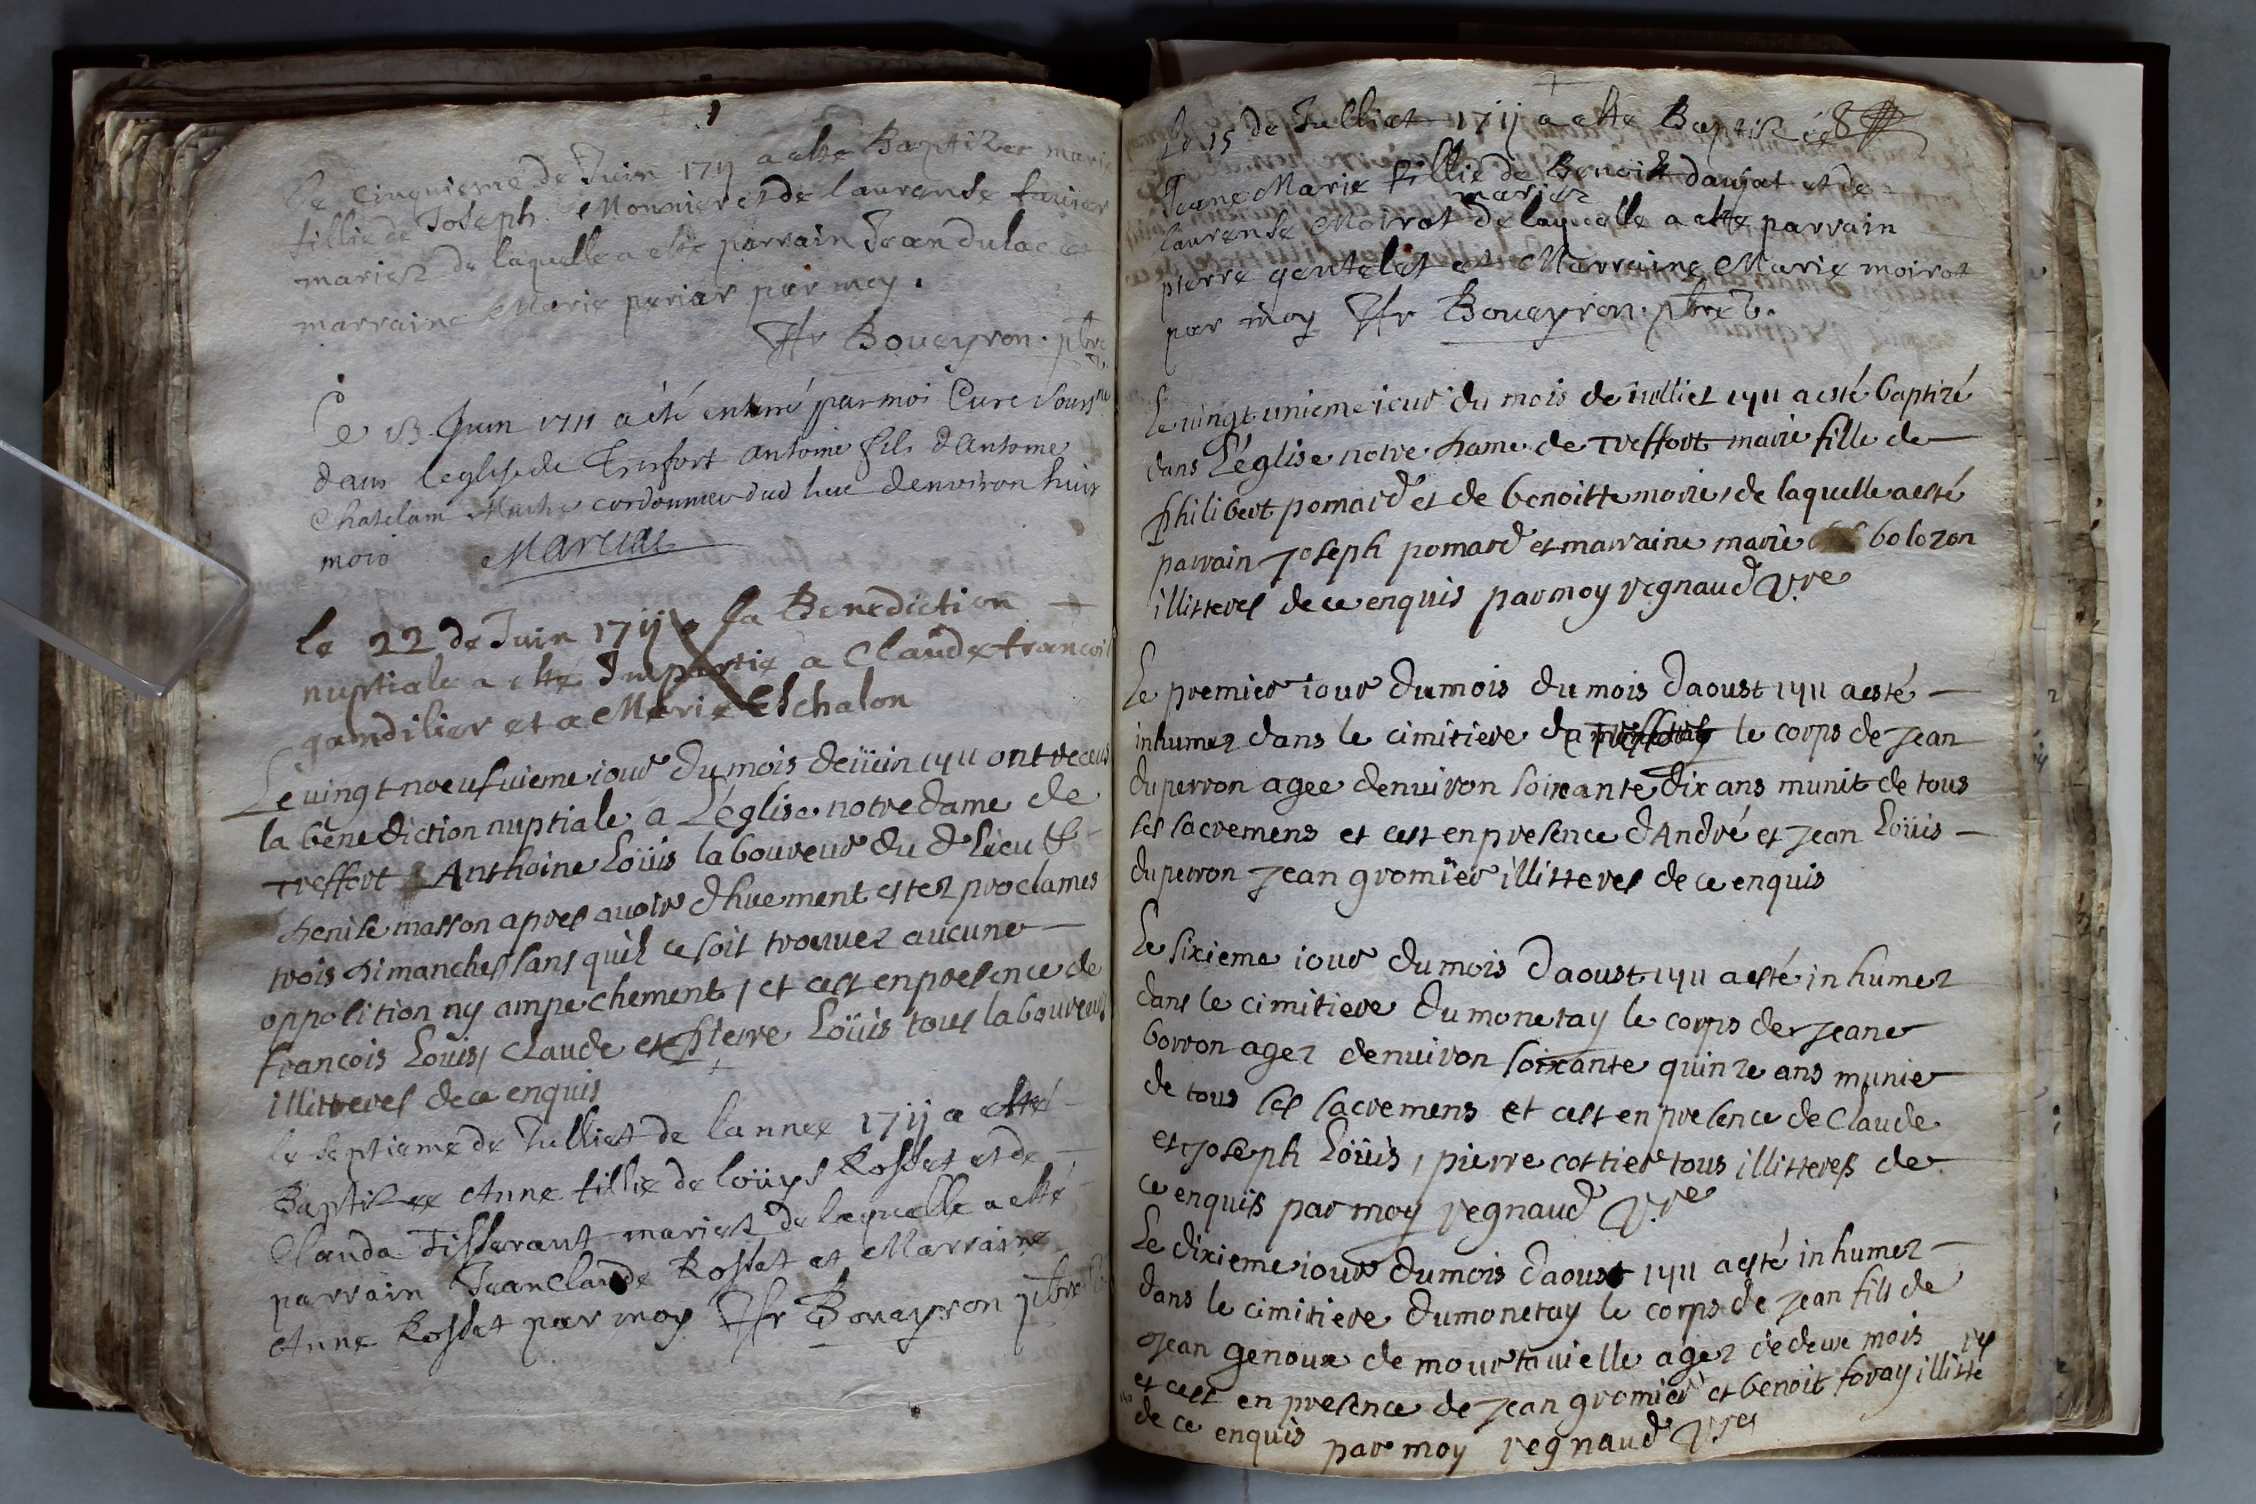 Le cinquieme de Juin 1711 a esté Baptizee marie
fillie de Joseph Monnier et de laurense favier
mariez de laquelle a esté parrain Jean dulac et
marraine Marie perier par moy.
Boueyron. pbre
Ce 13 Juin 1711 a été enterré par moi Curé sous né
dans leglise de Treffort antoine fils d'antoine
Chatelain cordonnier dud lieu denviron huit
mois
le 22 de Juin 1711 la Benediction
nuptiale a esté Impartie a Claude francois
gandilier et a Marie Eschalon
Le vingt noeufvieme iour du mois de iuin 1711 ont receus
la benediction nuptiale a L'eglise notre dame de
treffort Anthoine Loüis laboureur du d Lieu &
denise masson apres avoir dhuement estez proclames
trois dimanches sans quil ce soit trouvez aucune
oppolition ny ampechement, et cest en presence de
francois Loüis, Claude et pierre Loüis tous laboureurs
illitteres de ce enquis
le septieme de Julliet de lannee 1711 a esté
Baptisee Anne fillie de loüys Rosset et de
Clauda Tisserant mariez de laquelle a esté
parrain Jean Claude Rosset et Marraine
Anne Rosset par moy Boueyron pbre
Le 15 de Julliet 1711 a esté Baptisée
Jeane Marie fillie de Benoist daujat et de
mariez
laurense Moirot de laquelle a esté parvain
pierre gentelet et Marraine Marie moirot
par moy Boueyron. pbre
Le vingt unieme iour du mois de iulliet 1711 a esté baptizé
dans L'eglise notre dame de treffort marie fille de
philibert pomard et de benoitte moire, de laquelle a esté
parrain Joseph pomard et marraine marie bolozon
illitteres de ce enquis par moy regnaud V.re
Le premier iour du mois du mois daoust 1711 a esté
inhumez dans le cimitiere le corps de Jean
duperron agee denuiron soixante dix ans munit de tous
ses sacremens et cest en presence dAndré et Jean Loüis
duperron Jean gromier illitteres de ce enquis
Le sixieme iour du mois daoust 1711 a esté inhumez
dans le cimitiere du monetay le corps de Jeane
borron agez denuiron soixante quinze ans munie
de tous ses sacremens et cest en presence de Claude
et Joseph Loüis, pierre cottier tous illitteres de
ce enquis par moy regnaud V.re
Le dixieme iour du mois daoust 1711 a esté inhumez
dans le cimitiere du monetay le corps de Jean fils de
Jean genoux de mourtauielle agez de deux mois
et cest en presence de Jean gromier et benoit foray illitteres
de ce enquis par moy regnaud V.re